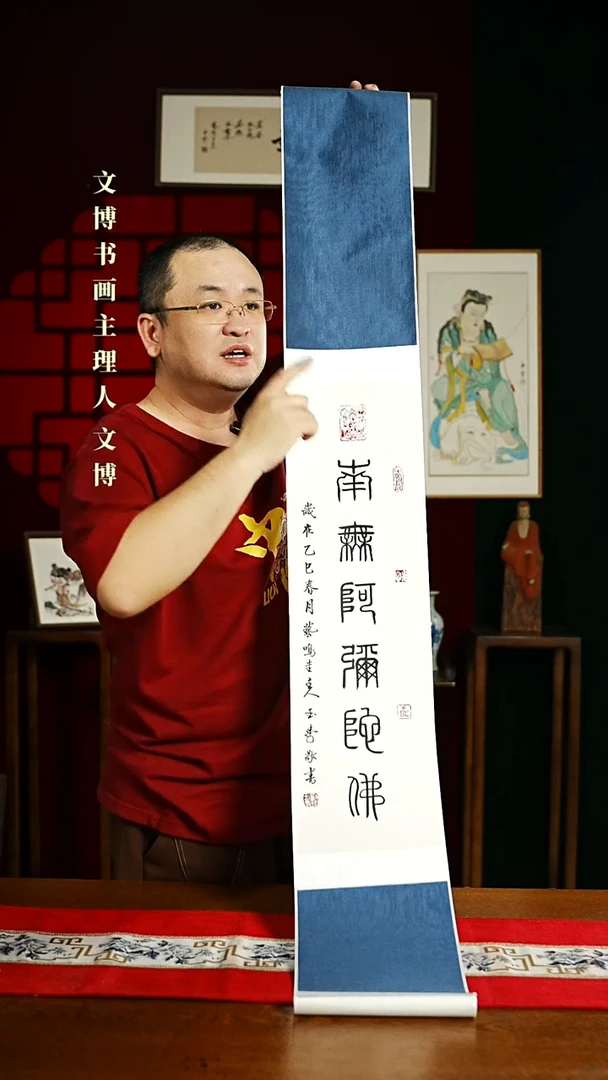 文博书画主理人文博
南無阿彌陀佛
歲在乙巳春月藝鳴
敬書